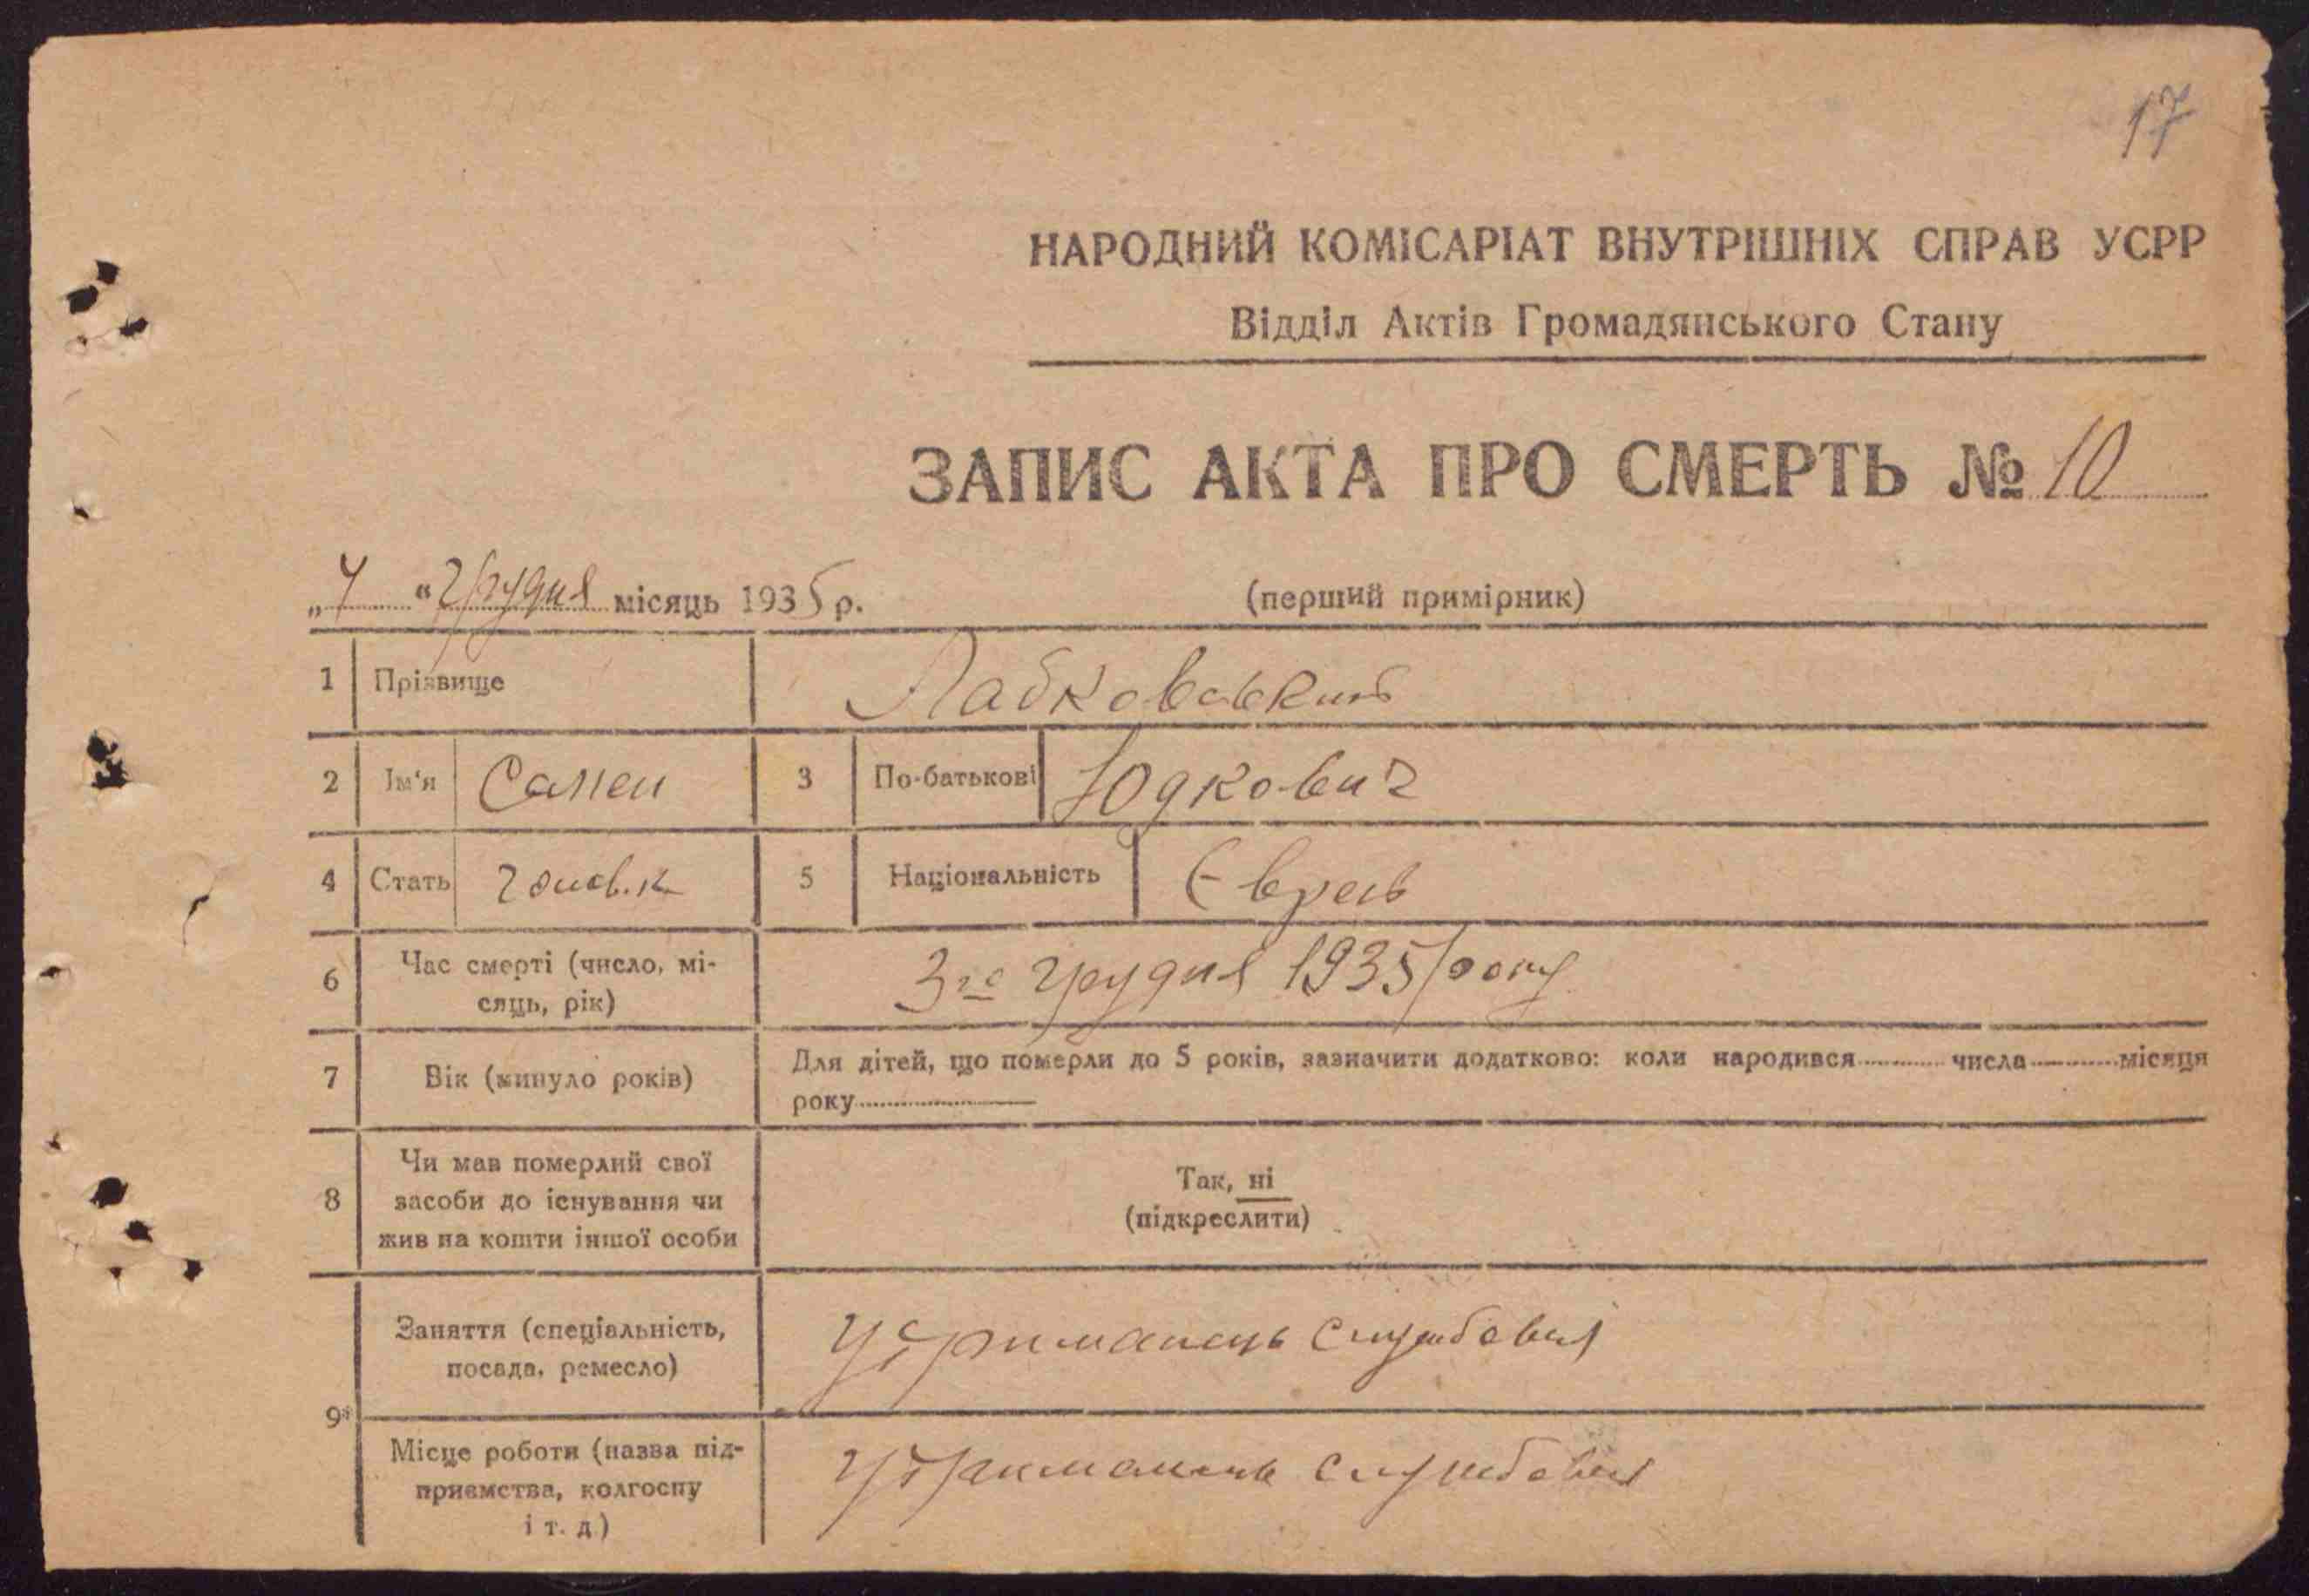 17
НАРОДНИЙ КОМІСАРІАТ ВНУТРІШНІХ СПРАВ УСРР
Відділ Актів Громадянського Стану
ЗАПИС АКТА ПРО СМЕРТЬ № 10
„ 4 “ Грудня місяць 1935 р. (перший примірник)
1 Прізвище Лабковський
2 Ім'я Самеи 3 По-батькові Юдкович
4 Стать 5 Національність Єврей
6 Час смерті (число, мі-
сяць, рік) 3го грудня 1935 року
7 Вік (минуло років) Для дітей, що померли до 5 років, зазначити додатково: коли народився числа місяця
року
8 Чи мав померлий свої
засоби до існування чи
жив на кошти іншої особи
Так, ні
(підкреслити)
9 Заняття (спеціальність,
посада, ремесло) Утриманець службовця
Місце роботи (назва під-
приємства, колгоспу
і т. д) Утриманець службовця